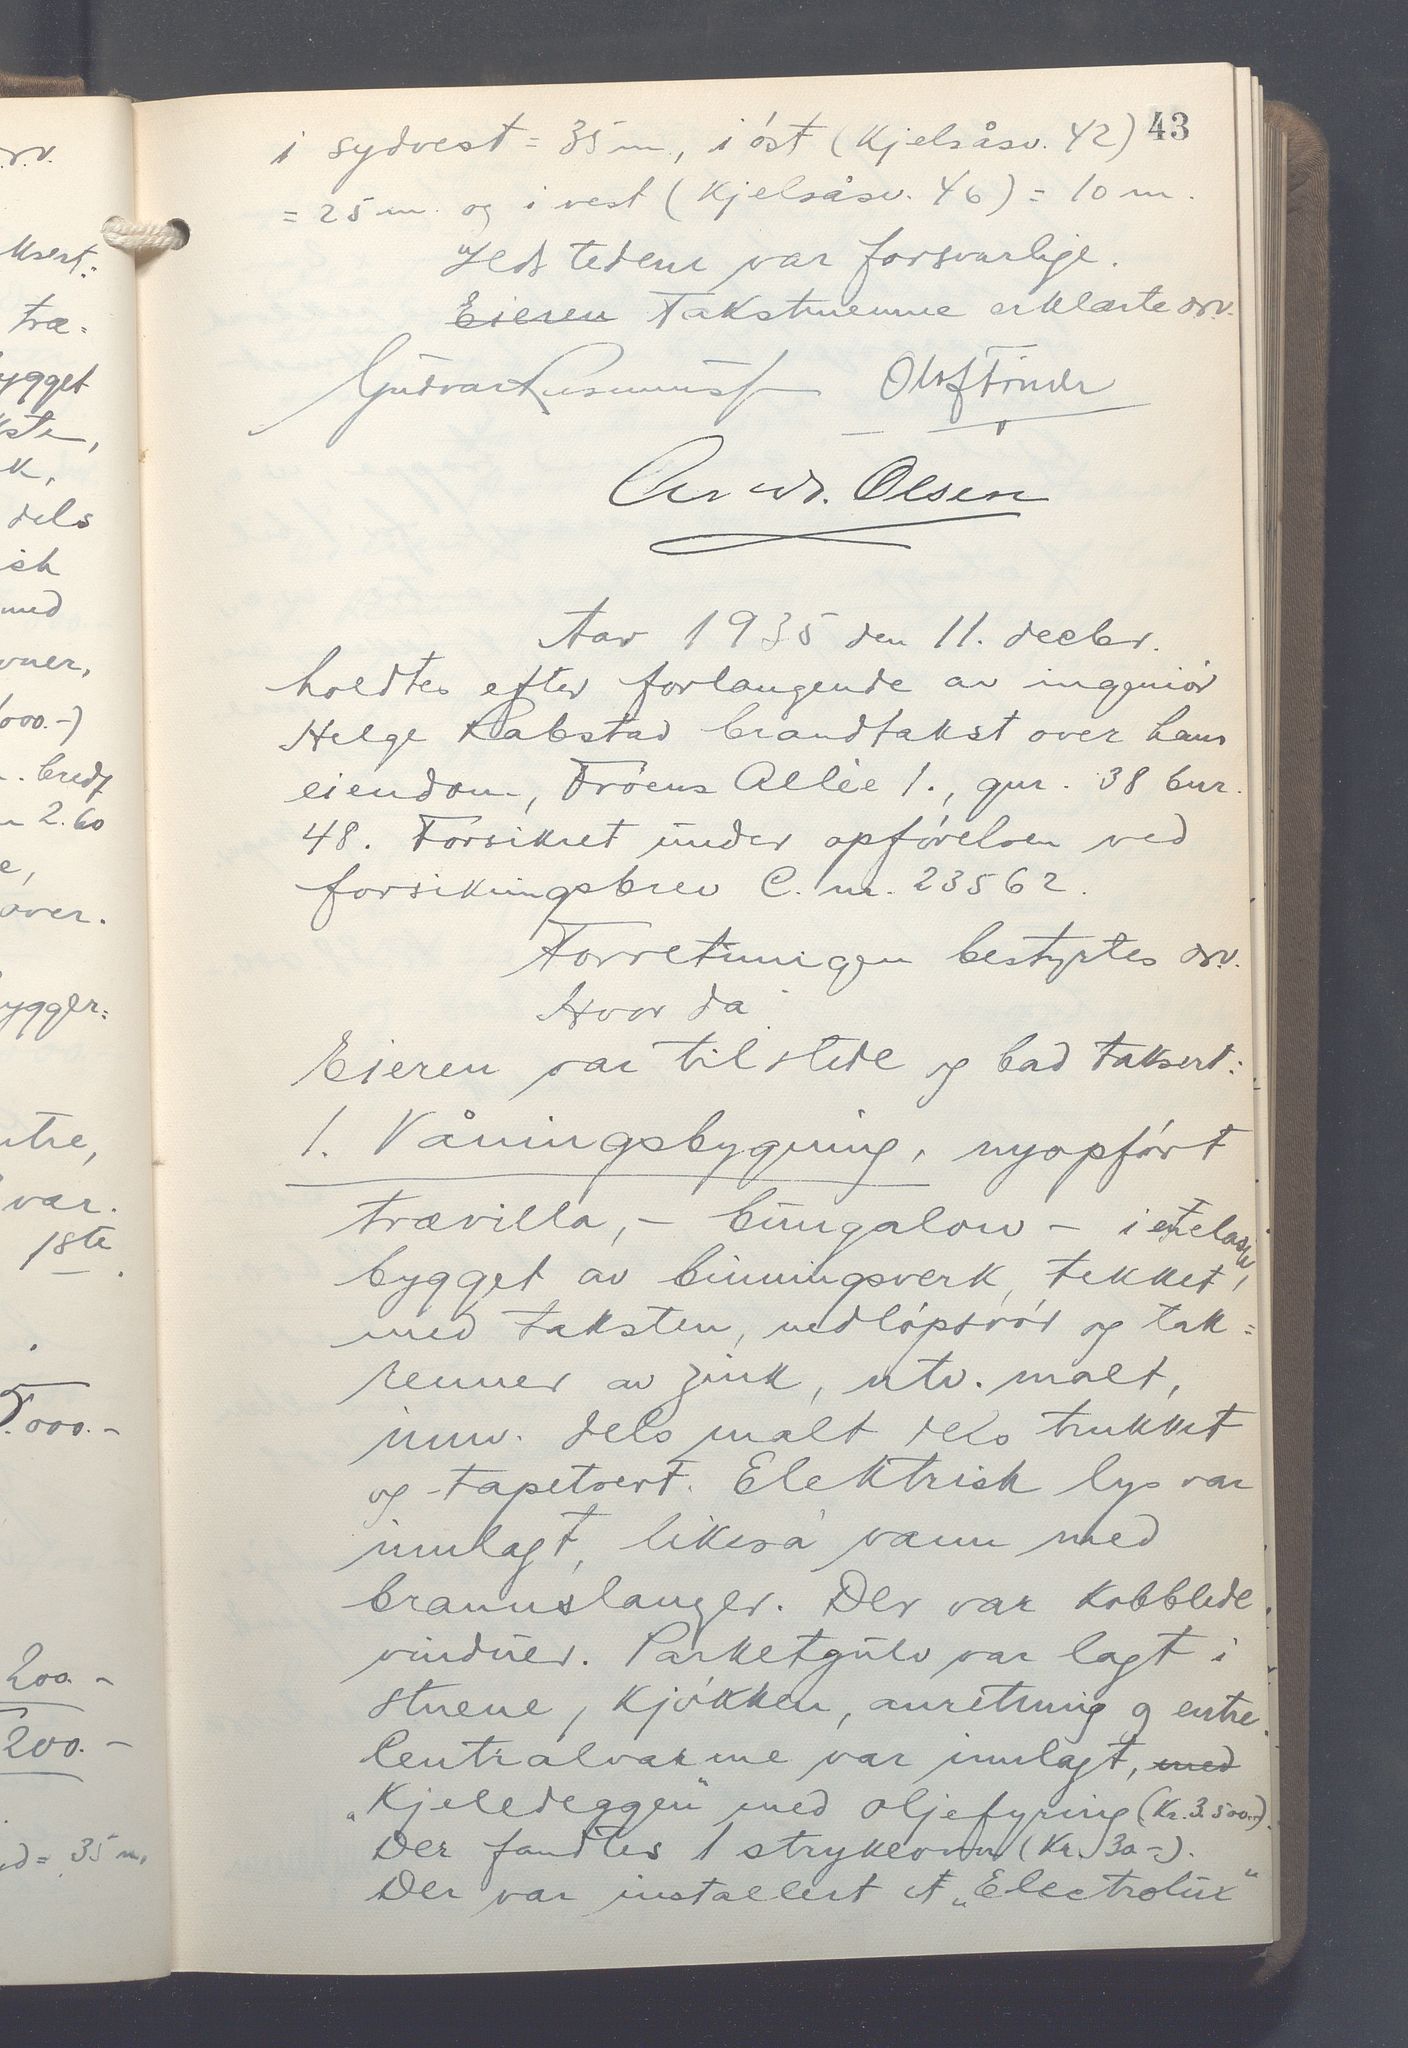 43
i sydvest = 35 m., i öst (Kjelsåsv. 42)
= 25 m. og i vest (Kjelsåsv. 46) = 10 m.
Ildstedene var forsvarlige.
Eieren Takstmennene erklærte osv.
Olaf Tinder
Olsen
Aar 1935 den 11. decbr.
holdtes efter forlangende av ingeniör
Helge Rabstad brandtakst over hans
eiendom, Fröens Allée 1., gnr. 38 bnr.
48. Forsikret under opförelsen ved
forsikringsbrev C. nr. 23562.
Forretningen bestyrtes osv.
Hvor da
Eieren var tilstede og bad taksert:
1. Våningsbygning, nyopfört
trævilla, - bungalow - i en etasje,
bygget av binningsverk, tekket
med taksten, nedlöpsrör og tak=
renner av zink, utv. malt,
innv. dels malt dels trukket
og tapetsert. Elektrisk lys var
innlagt, likeså vann med
brannslanger. Der var kobblede
vinduer. Parketgulv var lagt i
stuene, kjökken, anretning og entre.
Centralvarme var innlagt, med
"Kjeledeggen" med oljefyring (Kr. 3.500.-).
Der fandtes 1 strykeovn (Kr. 30-).
Der var installert et "Electrolux"
osv.
ksert:
træ=
bygget
ksten,
k,
dels
isk
med
ovner,
000.-)
m. bredt
m 2.60
e,
over.
bygger=
ntre,
var.
18te
5.000.-
200.-
200.-
d = 35 m.